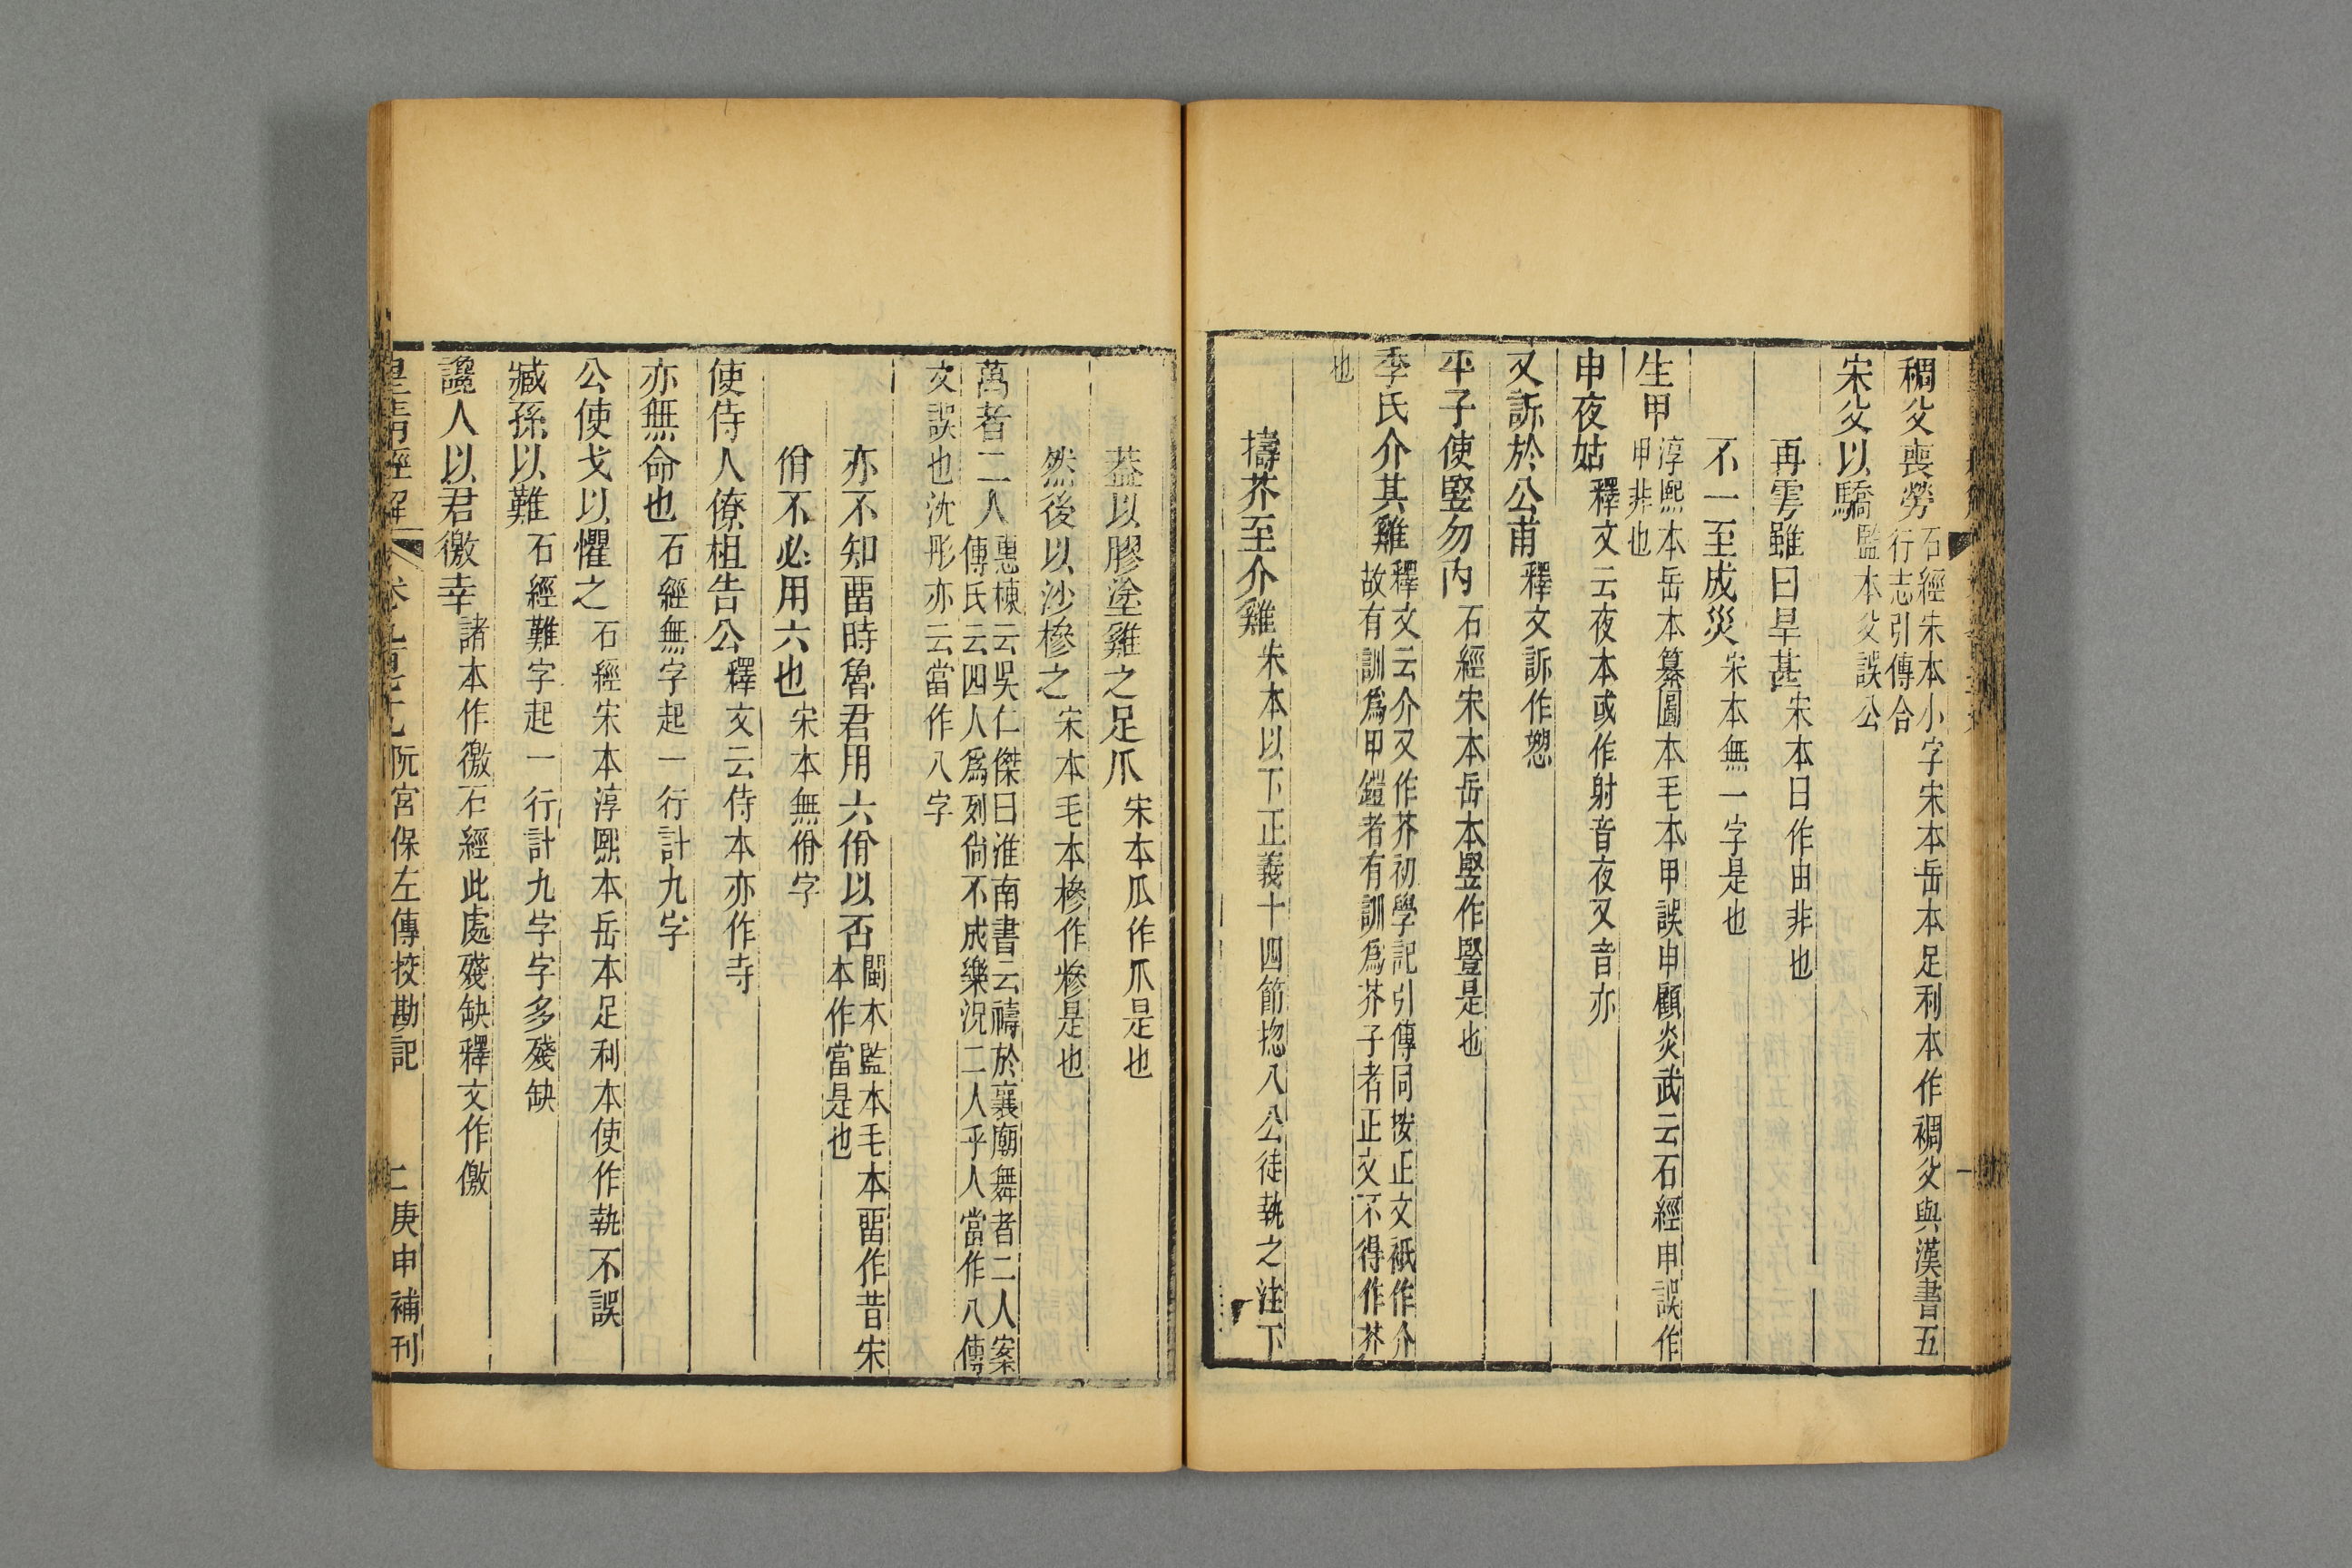 稠父喪勞石經宋本小字宋本岳本足利本作禂父與漢書五
行志引傳合
宋父以驕監本父誤公
再雩雖曰旱甚宋本日作由非也
不一至成災宋本無一字是也
生甲淳熙本岳本纂圖本毛本甲誤申顧炎武云石經申誤作
甲非也
申夜姑釋文云夜本或作射音夜又音亦
又訴於公甫釋文訴作愬
平子使竪勿內石經宋本岳本竪作豎是也
季氏介其雞釋文云介又作芥初學記引傳同按正文祇作介
故有訓爲甲鎧者有訓爲芥子者正文不得作芥
也
擣芥至介雞宋本以下正義十四節揔入公徒執之注下
葢以膠塗雞之足爪宋本瓜作爪是也
然後以沙槮之宋本毛本槮作糝是也
萬者二人惠棟云吳仁傑曰淮南書云禱於襄廟舞者二人案
傅氏云四人爲列尙不成樂況二人乎人當作八傳
文誤也沈彤亦云當作八字
亦不知畱時魯君用六佾以否閩本監本毛本畱作昔宋
本作當是也
佾不必用六也宋本無佾字
使侍人僚柤告公釋文云侍本亦作寺
亦無命也石經無字起一行計九字
公使戈以懼之石經宋本淳熙本岳本足利本使作執不誤
臧孫以難石經難字起一行計九字字多殘缺
讒人以君徼幸諸本作徼石經此處殘缺釋文作儌
皇淸經解 阮宮保左傳挍勘記 二 庚申補刊